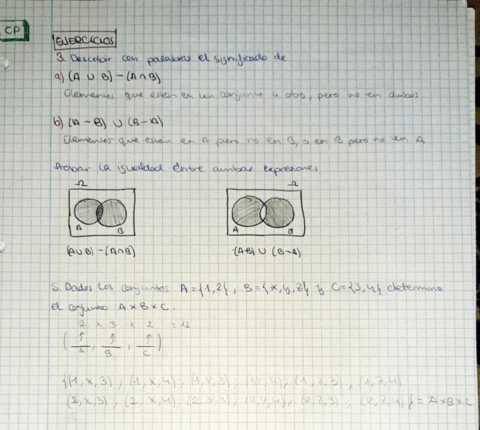 CP
EJERCICIOS
3. Describir con palabras el significado de
a) (A ∪ B) - (A ∩ B)
Elementos que estén en un conjunto u otro, pero no en ambos
b) (A - B) ∪ (B - A)
Elementos que están en A pero no en B, o en B pero no en A
Probar la igualdad entre ambas expresiones
Ω Ω
A B A B
(A∪B) - (A∩B) (A-B) ∪ (B-A)
5. Dados los conjuntos A={1,2}, B={x,y,z} y C={3,4} determine
el conjunto A×B×C.
2 × 3 × 2 = 12
(↑, ↑, ↑)
A B C
{(1,x,3), (1,x,4), (1,y,3), (1,y,4), (1,z,3), (1,z,4)
(2,x,3), (2,x,4), (2,y,3), (2,y,4), (2,z,3), (2,z,4)} = A×B×C